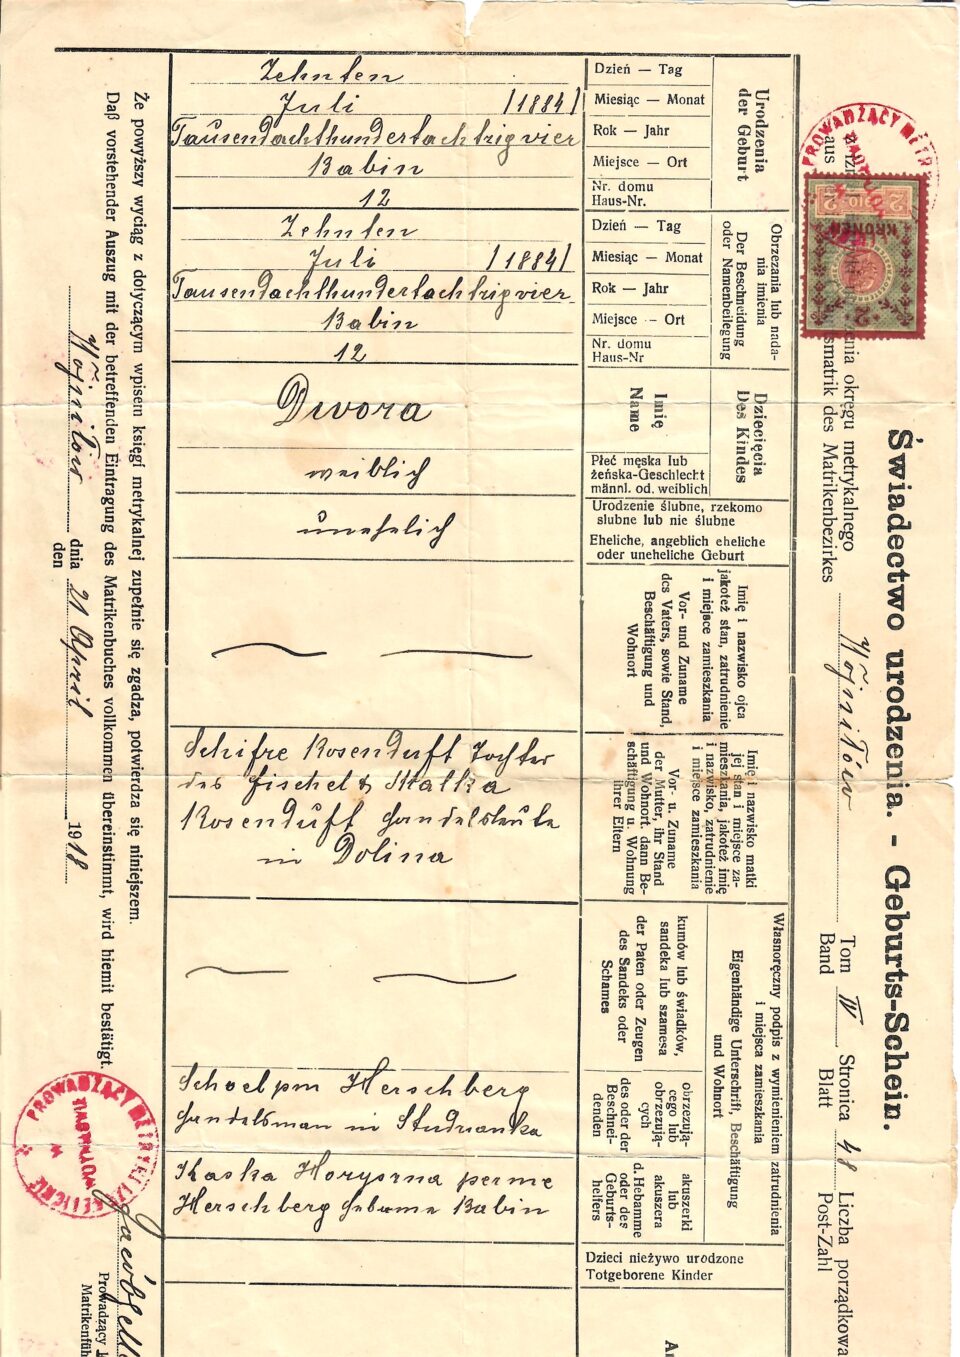 Świadectwo urodzenia. - Geburts-Schein.
okręgu metrykalnego
des Matrikenbezirkes
Wójniłów
Tom
Band
IV
Stronica
Blatt
48
Liczba porządkowa
Post-Zahl
KRONEN
2
2
1910
2
Urodzenia
der Geburt
Dzień — Tag
Zehnten
Miesiąc — Monat
Juli /1884/
Rok — Jahr
Tausendachthundertachtzigvier
Miejsce — Ort
Babin
Nr. domu
Haus-Nr.
12
Obrzezania lub nada-
nia imienia
Der Beschneidung
oder Namenbeilegung
Dzień — Tag
Zehnten
Miesiąc — Monat
Juli /1884/
Rok — Jahr
Tausendachthundertachtzigvier
Miejsce — Ort
Babin
Nr. domu
Haus-Nr
12
Dziecięcia
Des Kindes
Imię
Name
Dwora
Płeć męska lub
żeńska-Geschlecht
männl. od. weiblich
weiblich
Urodzenie ślubne, rzekomo
slubne lub nie ślubne
Eheliche, angeblich eheliche
oder uneheliche Geburt
unehelich
Imię i nazwisko ojca
jakoteż stan, zatrudnienie
i miejsce zamieszkania
Vor- und Zuname
des Vaters, sowie Stand,
Beschäftigung und
Wohnort
Imię i nazwisko matki
jej stan i miejsce za-
mieszkania, jakoteż imię
i nazwisko, zatrudnienie
i miejsce zamieszkania
Vor- u. Zuname
der Mutter, ihr Stand
und Wohnort. dann Be-
schäftigung u. Wohnung
ihrer Eltern
Schifre Rosenduft Tochter
des Fischel & Malka
Rosenduft Handelsleute
in Dolina
Własnoręczny podpis z wymienieniem zatrudnienia
i miejsca zamieszkania
Eigenhändige Unterschrift, Beschäftigung
und Wohnort
kumów lub świadków,
sandeka lub szamesa
der Paten oder Zeugen
des Sandeks oder
Schames
obrzezują-
cego lub
obrzezują-
cych
des oder der
Beschnei-
denden
Herschberg
Handelsman in Studzianka
akuszerki
lub
akuszera
d. Hebamme
oder des
Geburts-
helfers
Kaska
Herschberg Babin
Dzieci nieżywo urodzone
Totgeborene Kinder
Że powyższy wyciąg z dotyczącym wpisem księgi metrykalnej zupełnie się zgadza, potwierdza się niniejszem.
Daß vorstehender Auszug mit der betreffenden Eintragung des Matrikenbuches vollkommen übereinstimmt, wird hiemit bestätigt.
Wójniłów
dnia
den
21 April
1918
PROWADZĄCY METRYKI
W
WOJNIŁOWIE
Prowadzący